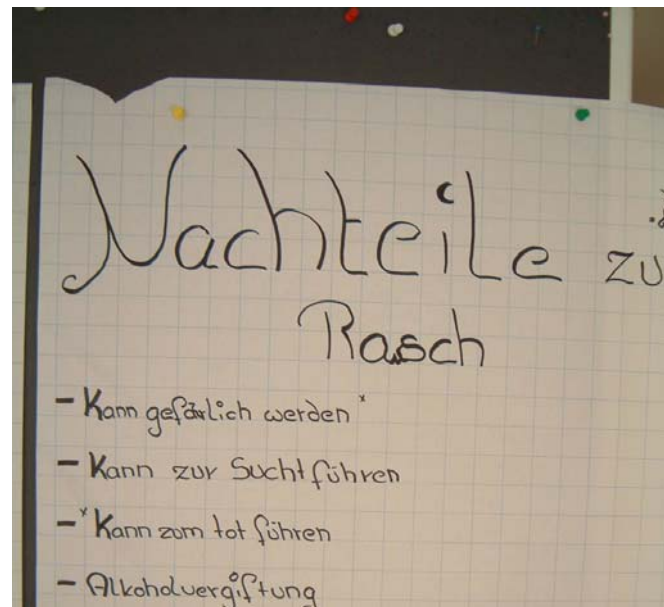 Nachteile zu
Rasch
- Kann gefärlich werden *
- Kann zur Sucht führen
- * Kann zum tot führen
- Alkoholvergiftung